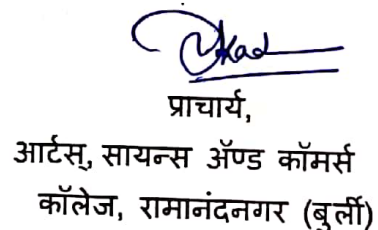 प्राचार्य,
आर्टस्, सायन्स ॲण्ड कॉमर्स
कॉलेज, रामानंदनगर (बुर्ली)